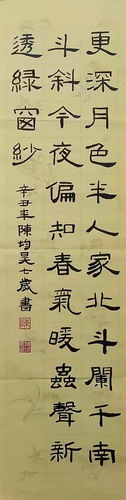 更深月色半人家北斗闌千南
斗斜今夜偏知春氣暖蟲聲新
透綠窗紗
辛丑年陳均昊七歲書